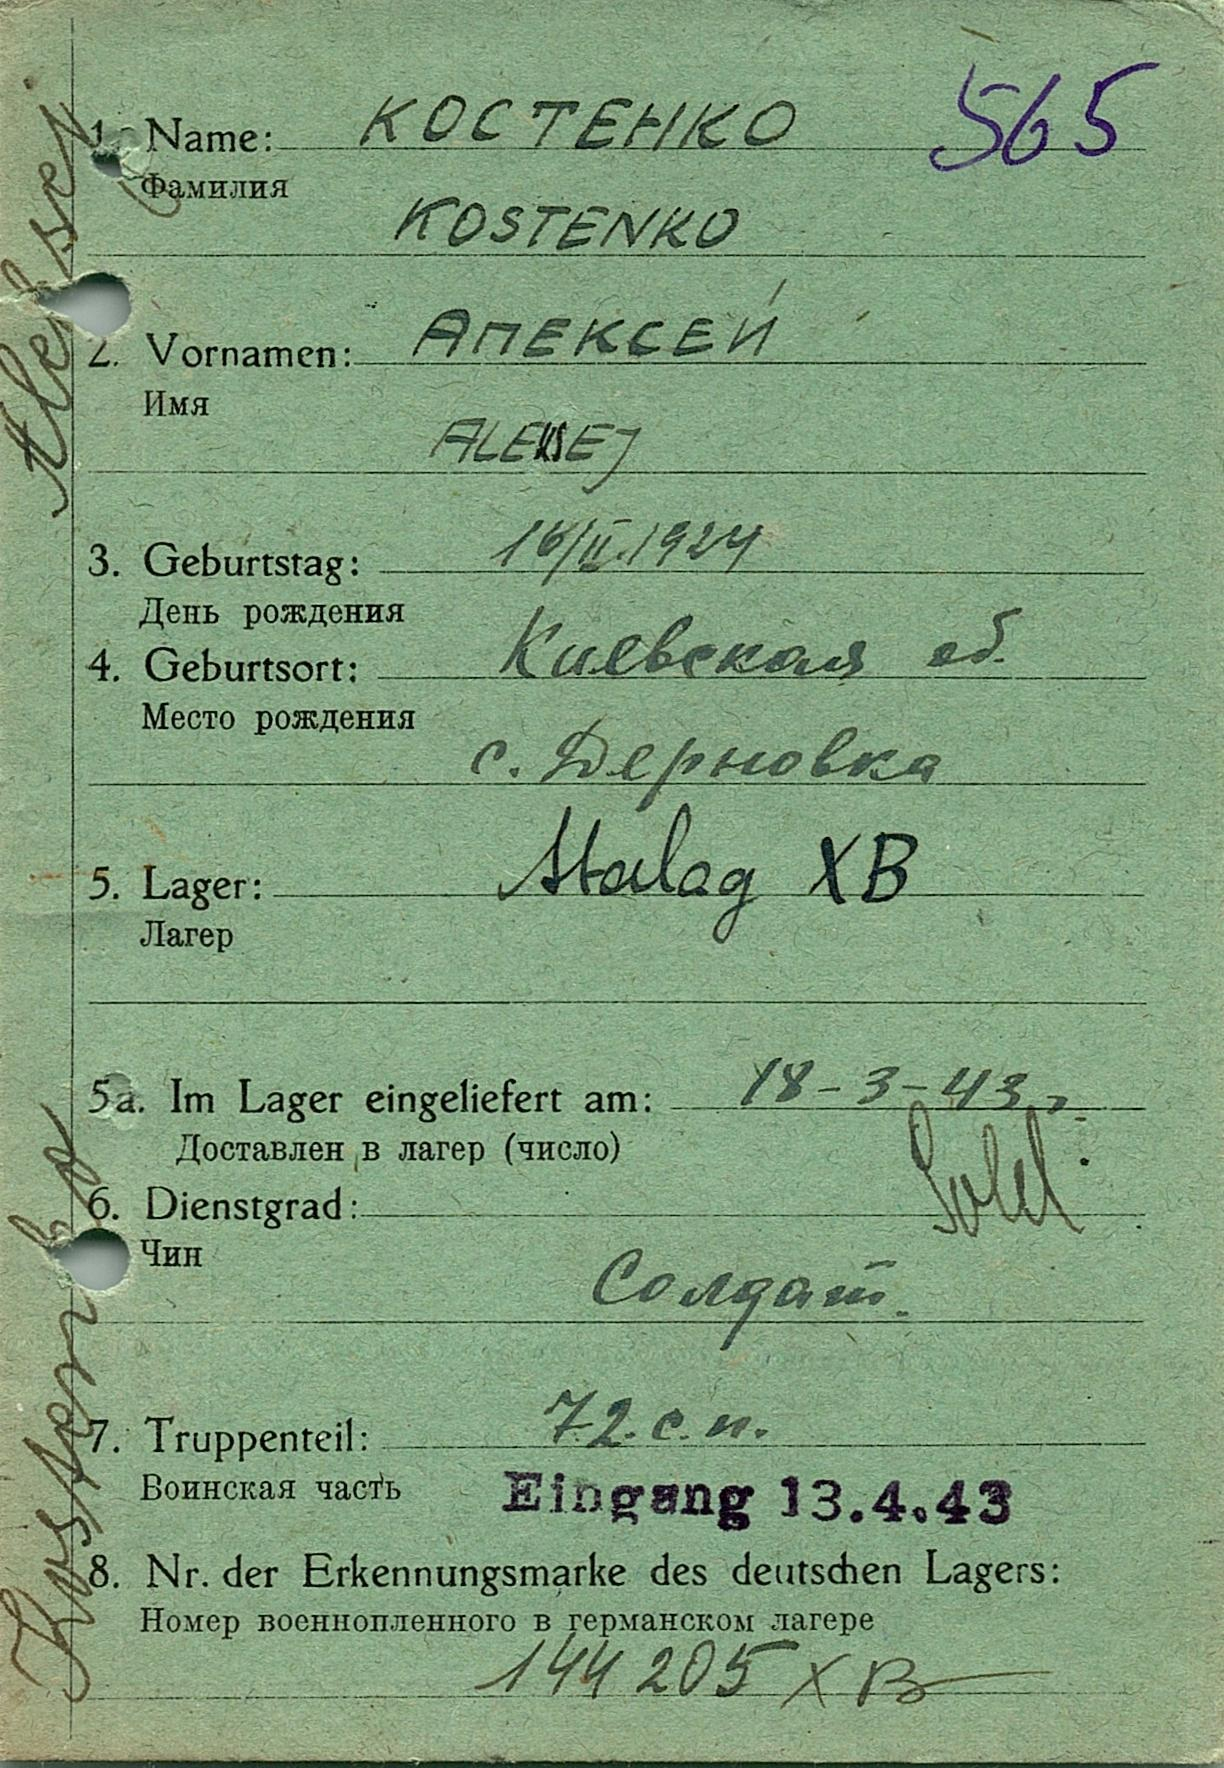 565
1. Name: КОСТЕНКО
Фамилия
KOSTENKO
2. Vornamen: АЛЕКСЕЙ
Имя
ALEKSEJ
3. Geburtstag: 16/II.1924
День рождения
4. Geburtsort: Киевская об.
Место рождения
с. Дерновка
5. Lager: Stalag XB
Лагер
5a. Im Lager eingeliefert am: 18-3-43 г.
Доставлен в лагер (число)
6. Dienstgrad: Sold.
Чин
Солдат.
7. Truppenteil: 72. с. п.
Воинская часть
Eingang 13.4.43
8. Nr. der Erkennungsmarke des deutschen Lagers:
Номер военнопленного в германском лагере
144 205 X B
Kostenko Aleksej